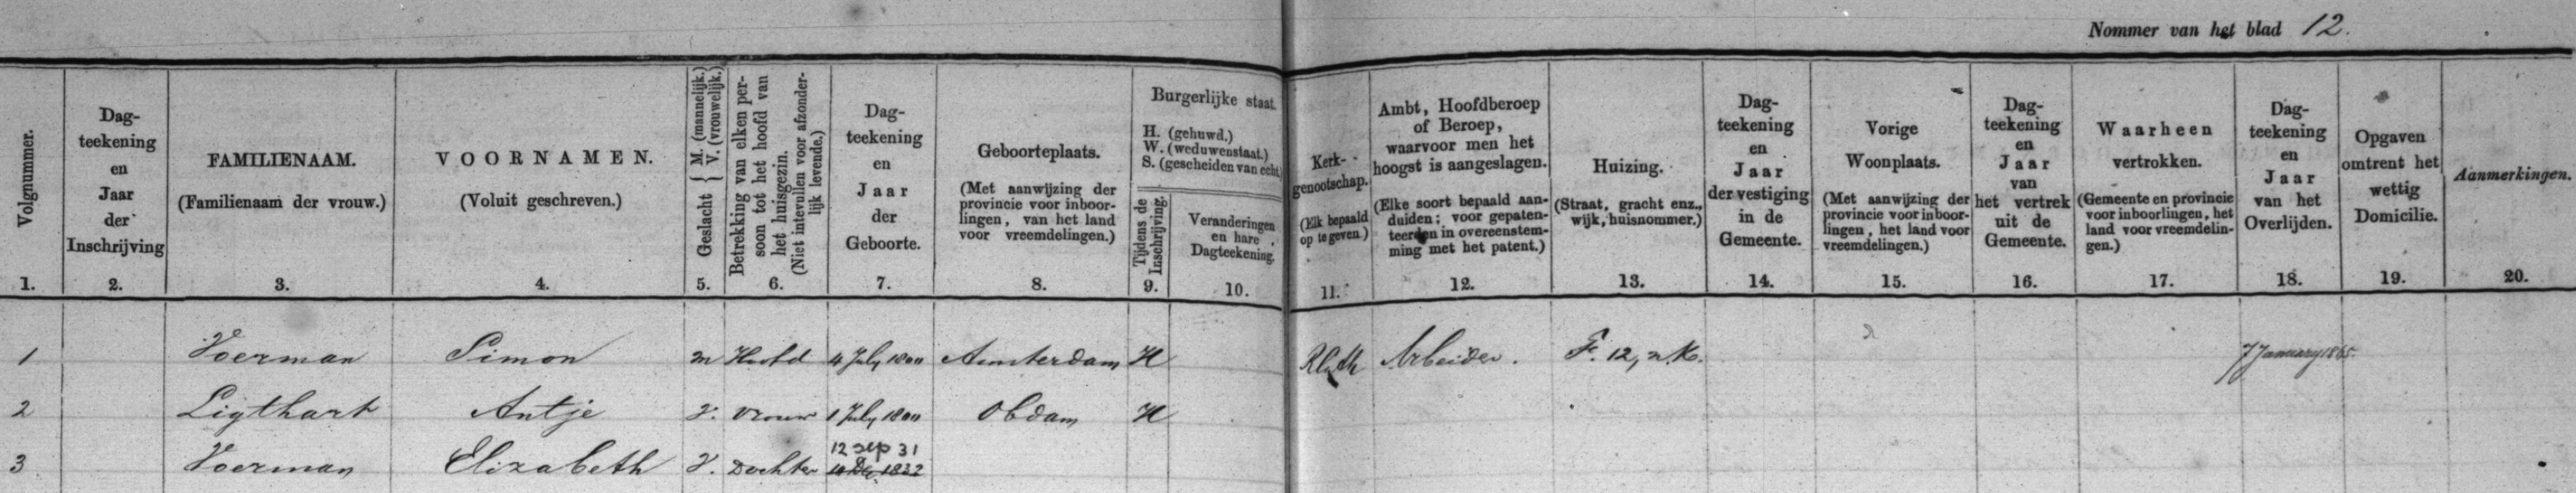 Nommer van het blad 12.
Volgnummer.
1.
Dag-
teekening
en
Jaar
der
Inschrijving
2.
FAMILIENAAM.
(Familienaam der vrouw.)
3.
VOORNAMEN.
(Voluit geschreven.)
4.
Geslacht { M. (mannelijk.)
V. (vrouwelijk.)
5.
Betrekking van elken per-
soon tot het hoofd van
het huisgezin.
(Niet intevullen voor afzonder-
lijk levende.)
6.
Dag-
teekening
en
Jaar
der
Geboorte.
7.
Geboorteplaats.
(Met aanwijzing der
provincie voor inboor-
lingen, van het land
voor vreemdelingen.)
8.
Burgerlijke staat.
H. (gehuwd.)
W. (weduwenstaat.)
S. (gescheiden van echt.)
Tijdens de
Inschrijving.
9.
Veranderingen
en hare
Dagteekening.
10.
Kerk-
genootschap.
(Elk bepaald
op te geven.)
11.
Ambt, Hoofdberoep
of Beroep,
waarvoor men het
hoogst is aangeslagen.
(Elke soort bepaald aan-
duiden; voor gepaten-
teerden in overeenstem-
ming met het patent.)
12.
Huizing.
(Straat, gracht enz.,
wijk, huisnommer.)
13.
Dag-
teekening
en
Jaar
der vestiging
in de
Gemeente.
14.
Vorige
Woonplaats.
(Met aanwijzing der
provincie voor inboor-
lingen, het land voor
vreemdelingen.)
15.
Dag-
teekening
en
Jaar
van
het vertrek
uit de
Gemeente.
16.
Waarheen
vertrokken.
(Gemeente en provincie
voor inboorlingen, het
land voor vreemdelin-
gen.)
17.
Dag-
teekening
en
Jaar
van het
Overlijden.
18.
Opgaven
omtrent het
wettig
Domicilie.
19.
Aanmerkingen.
20.
1 Voerman Simon m Hoofd 4 July 1800 Amsterdam H R Cath Arbeider. F. 12, n.K. 7 January 1865.
2 Ligthart Antje V. Vrouw 1 July 1800 Obdam H
12 sep 31
3 Voerman Elizabeth V. Dochter 10 Dec. 1832